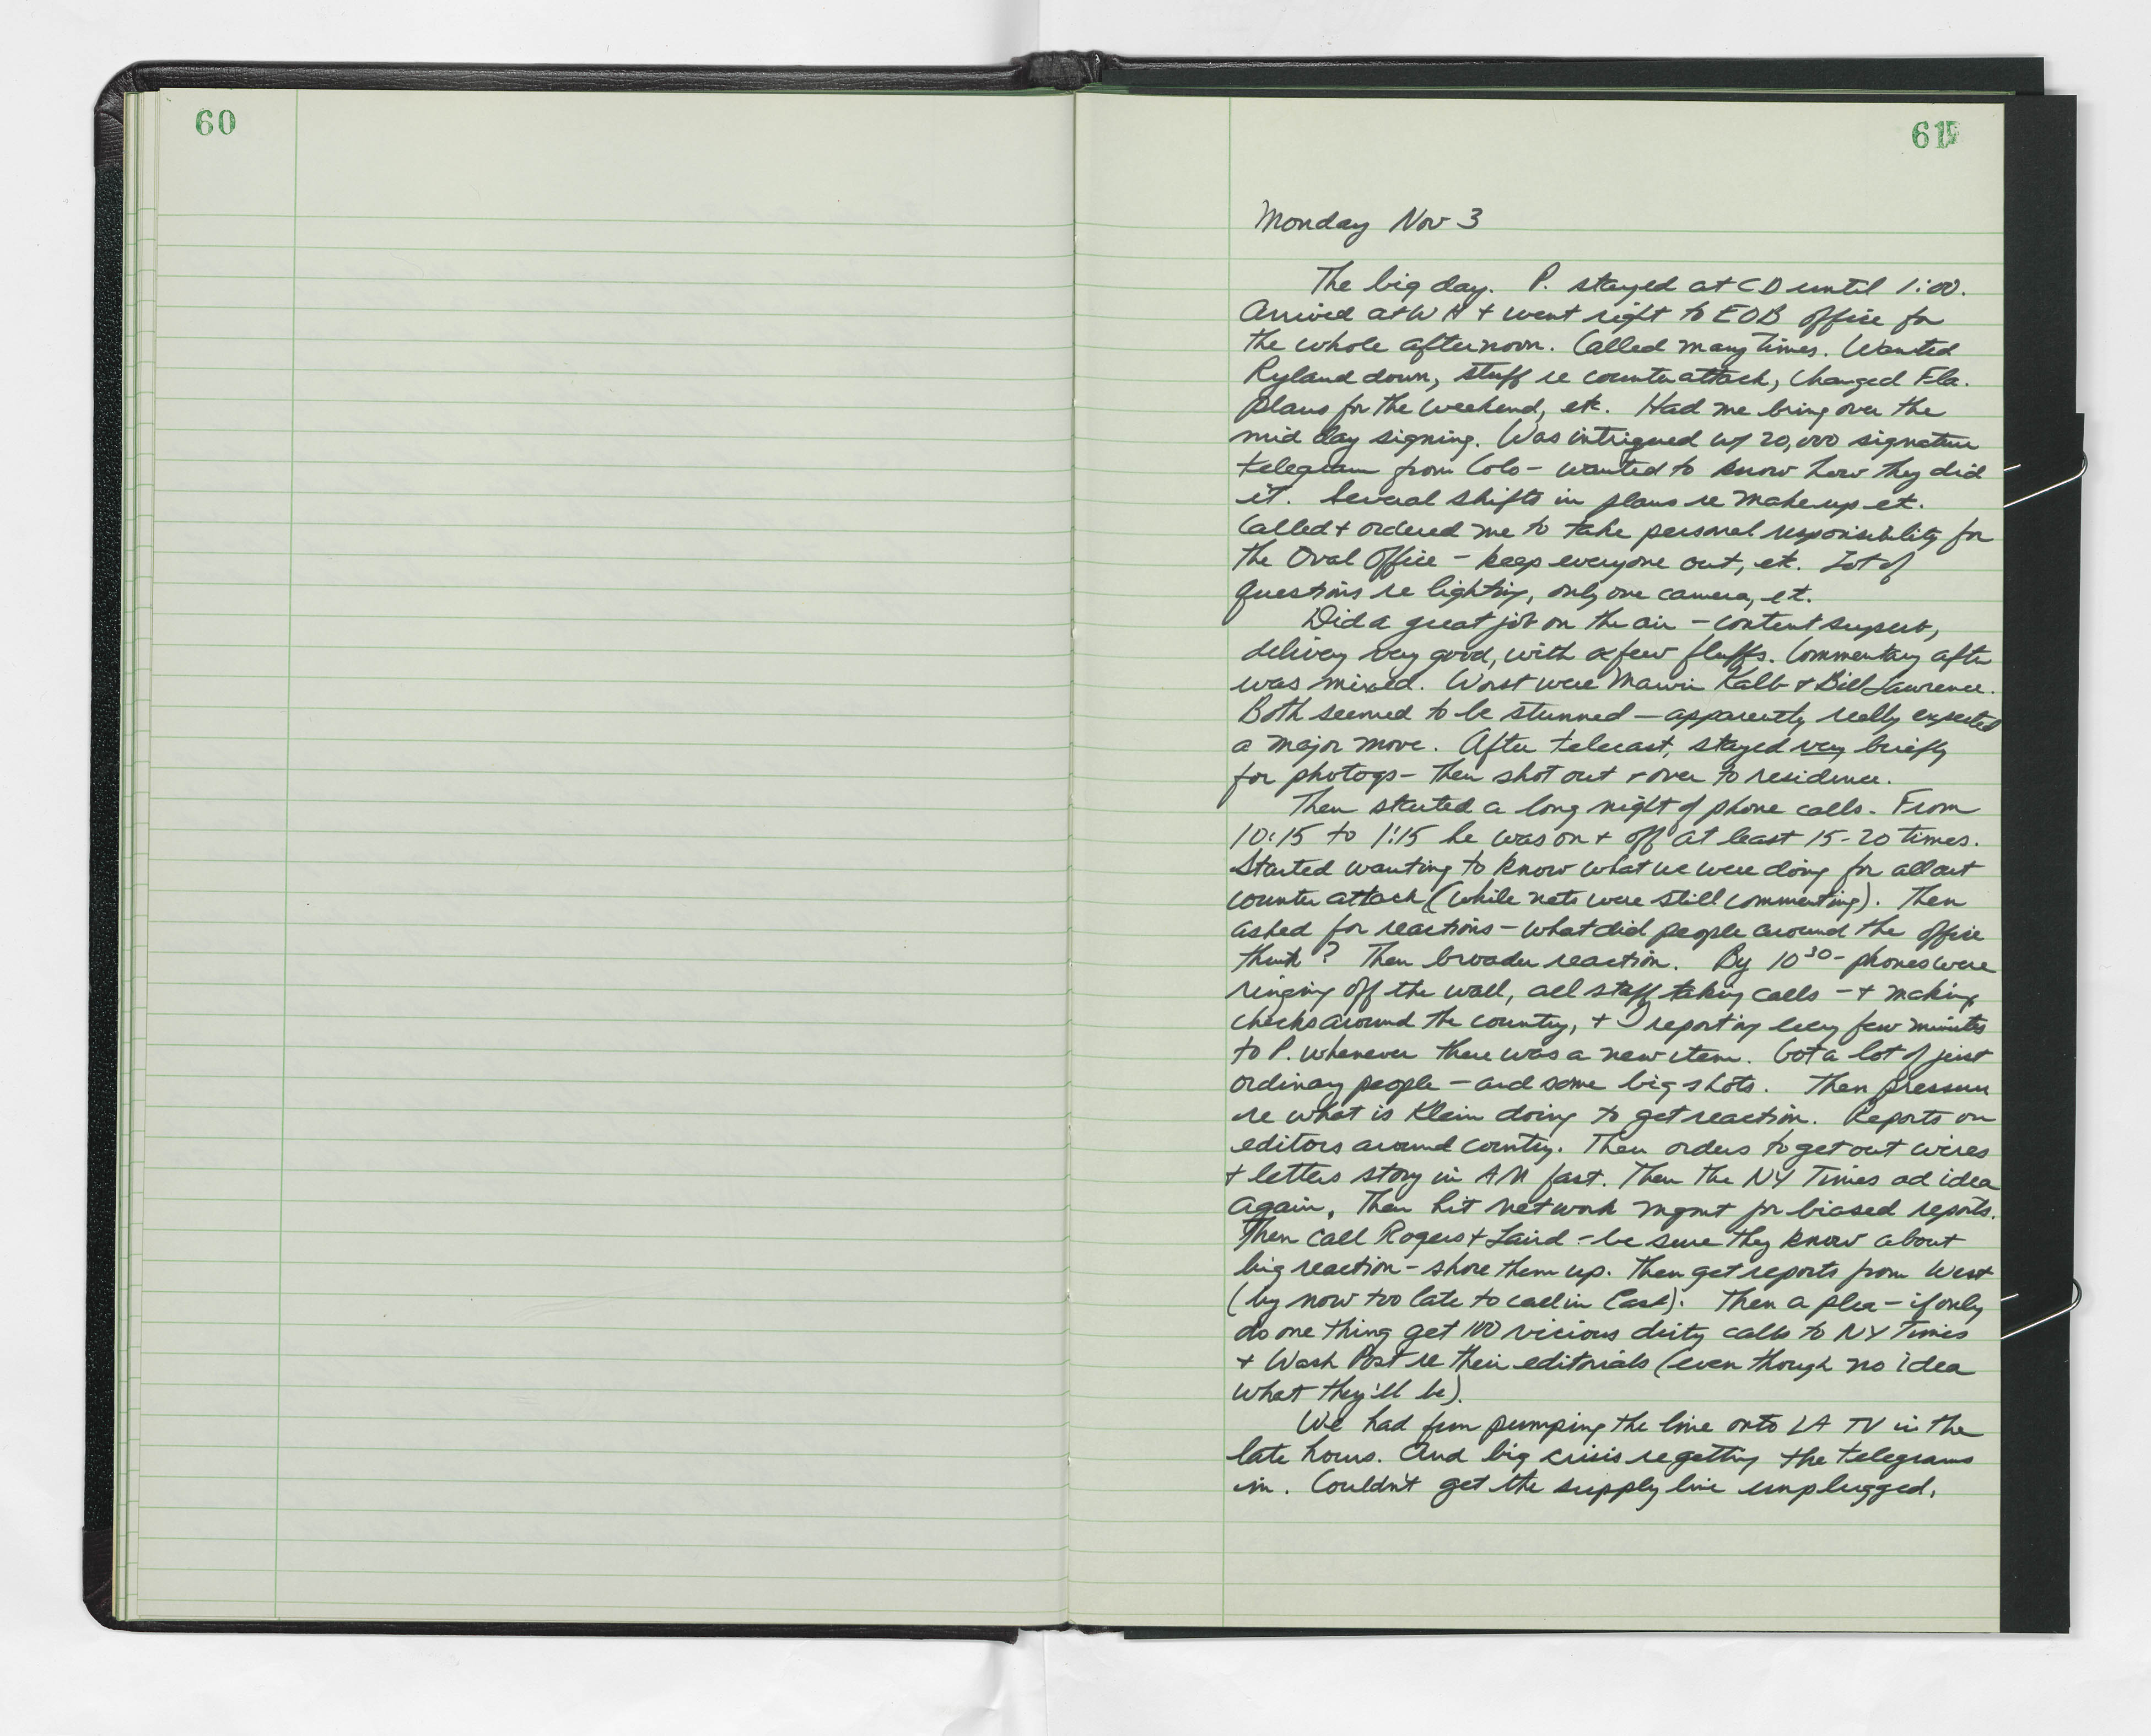 60
61
Monday Nov 3
The big day. P. stayed at CD until 1:00.
Arrived at WH + went right to EOB office for
the whole afternoon. Called many times. Wanted
Ryland down, stuff re counterattack, changed Fla.
plans for the weekend, etc. Had me bring over the
mid day signing. Was intrigued w/ 20,000 signature
telegram from Colo - wanted to know how they did
it. Several shifts in plans re makeup et.
Called + ordered me to take personal responsibility for
the Oval Office - keep everyone out, et. Lot of
questions re lighting, only one camera, et.
Did a great job on the air - content superb,
delivery very good, with a few fluffs. Commentary after
was mixed. Worst were Marvin Kalb + Bill Lawrence.
Both seemed to be stunned - apparently really expected
a major move. After telecast, stayed very briefly
for photogs - then shot out + over to residence.
Then started a long night of phone calls. From
10:15 to 1:15 he was on + off at least 15-20 times.
Started wanting to know what we were doing for allout
counter attack (while nets were still commenting). Then
asked for reactions - what did people around the office
think? Then broader reaction. By 10 30 - phones were
ringing off the wall, all staff taking calls - + making
checks around the country, + I reporting every few minutes
to P. whenever there was a new item. Got a lot of just
ordinary people - and some big shots. Then pressure
re what is Klein doing to get reaction. Reports on
editors around country. Then orders to get out wires
+ letters story in AM fast. Then the NY Times ad idea
again. Then hit network mgmt for biased reports.
Then call Rogers + Laird - be sure they know about
big reaction - shore them up. Then get reports from West
(by now too late to call in East). Then a plea - if only
do one thing get 100 vicious dirty calls to NY Times
+ Wash Post re their editorials (even though no idea
what they'll be).
We had fun pumping the line onto LA TV in the
late hours. And big crisis re getting the telegrams
in. Couldn't get the supply line unplugged.